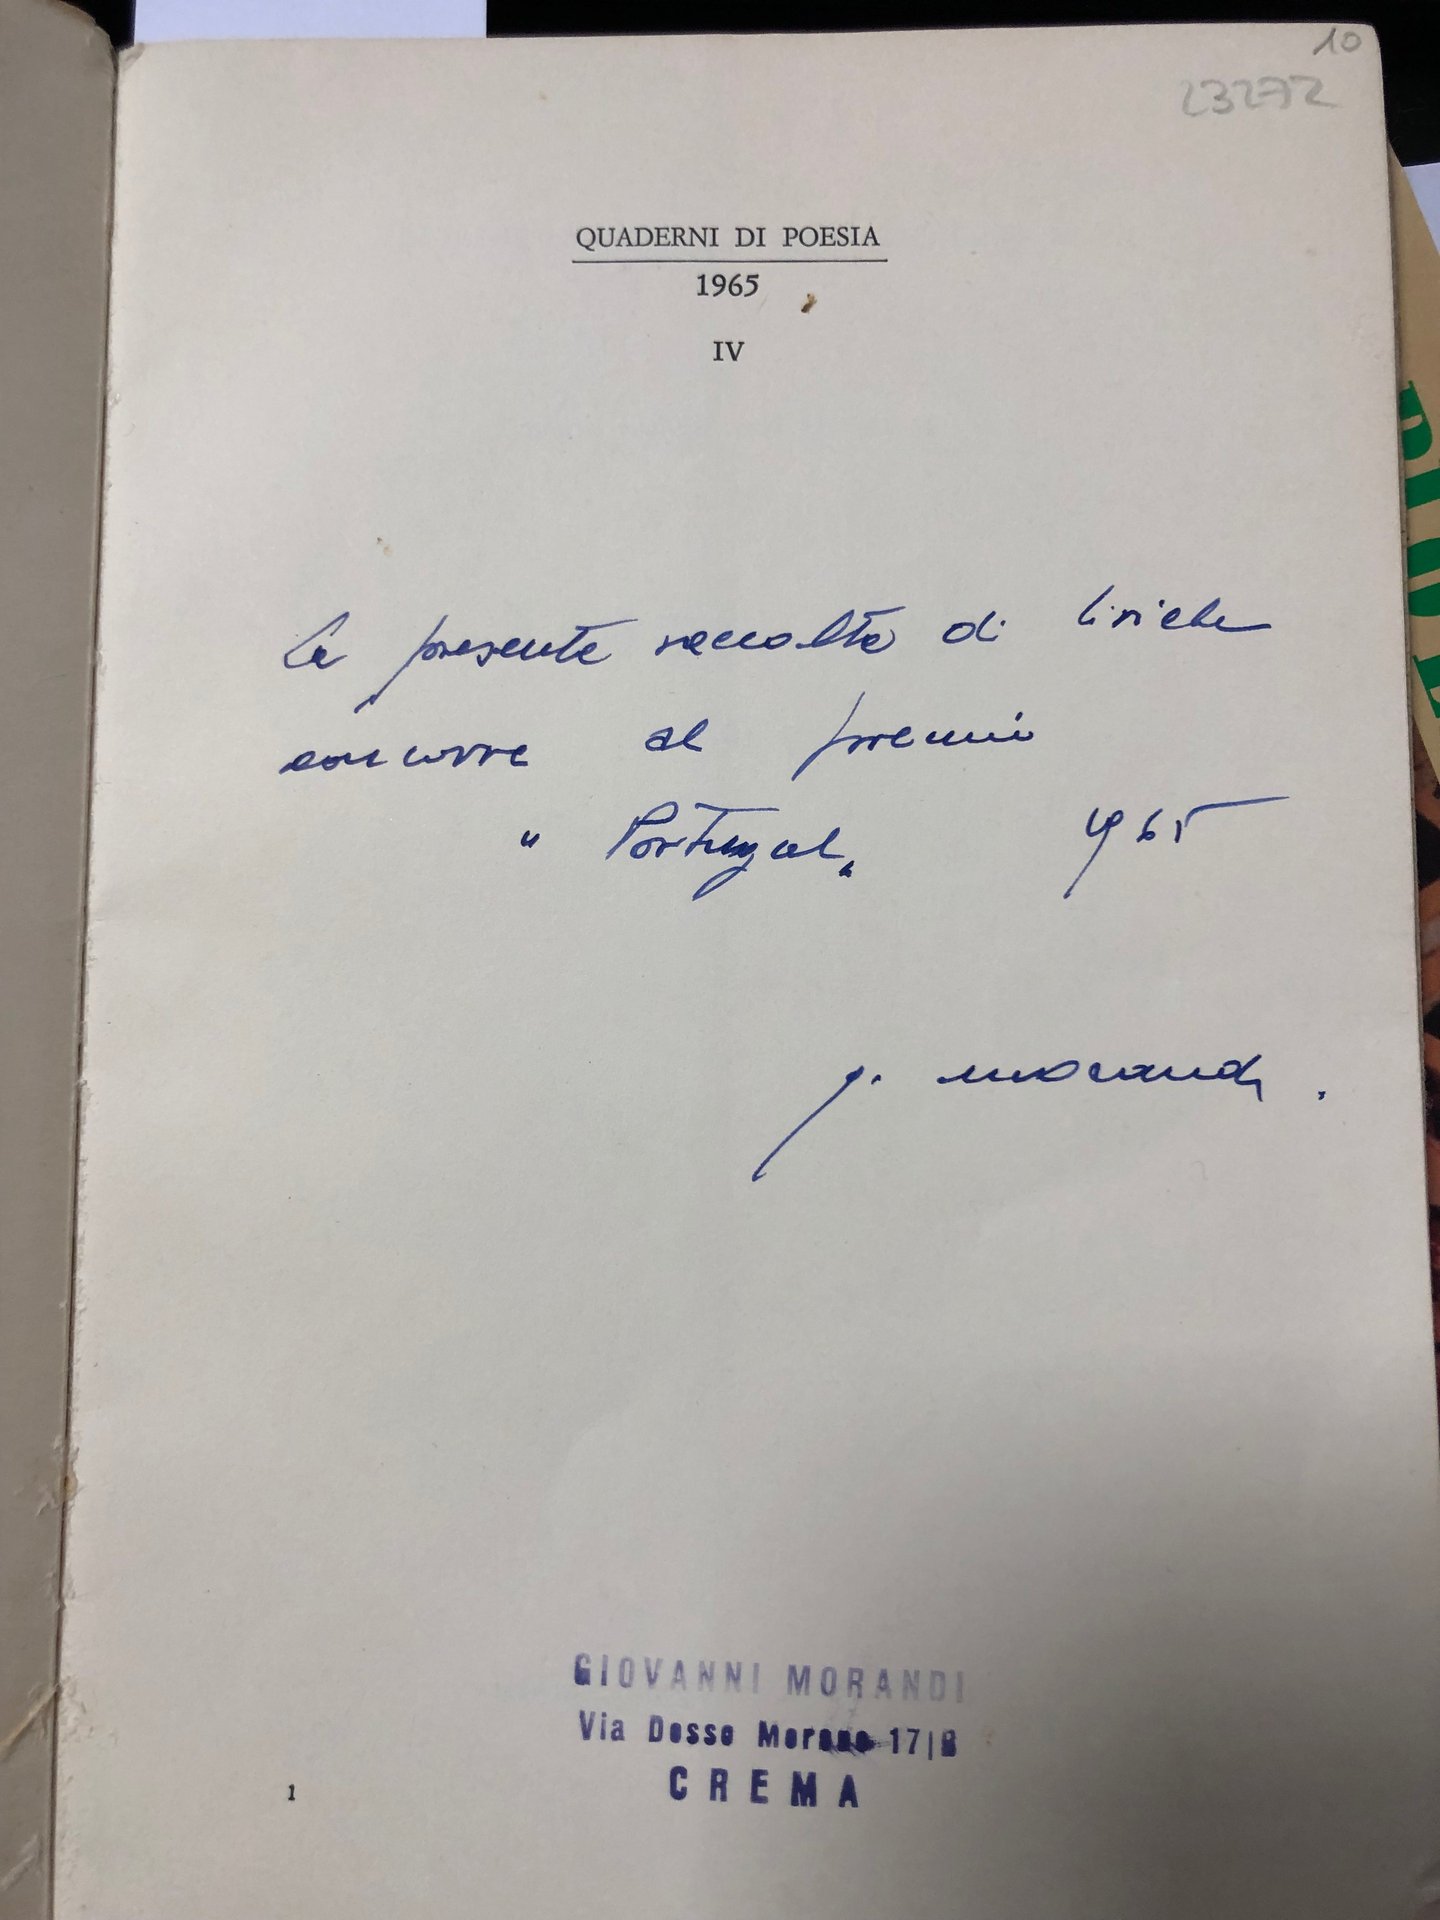 10
23272
QUADERNI DI POESIA
1965
IV
La presente raccolta di liriche
concorre al premio
" Portugal " 1965
g. morandi.
GIOVANNI MORANDI
Via Dosso 17|B
CREMA
1